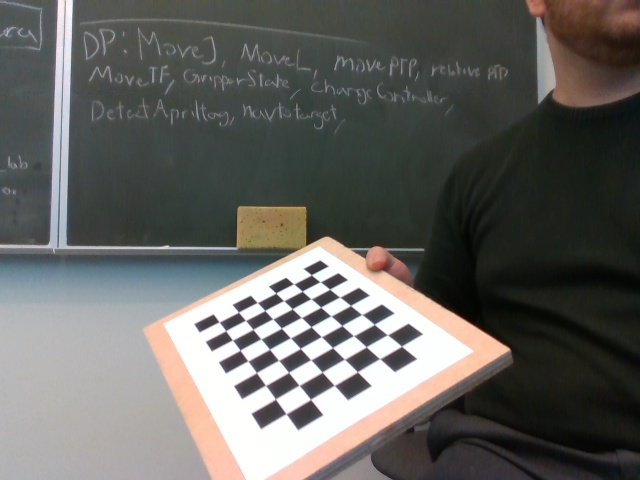 DP: MoveJ, MoveL, movePTP, relative PTP
MoveTF, GripperState, changeController,
DetectApriltag, navtotarget,
lab